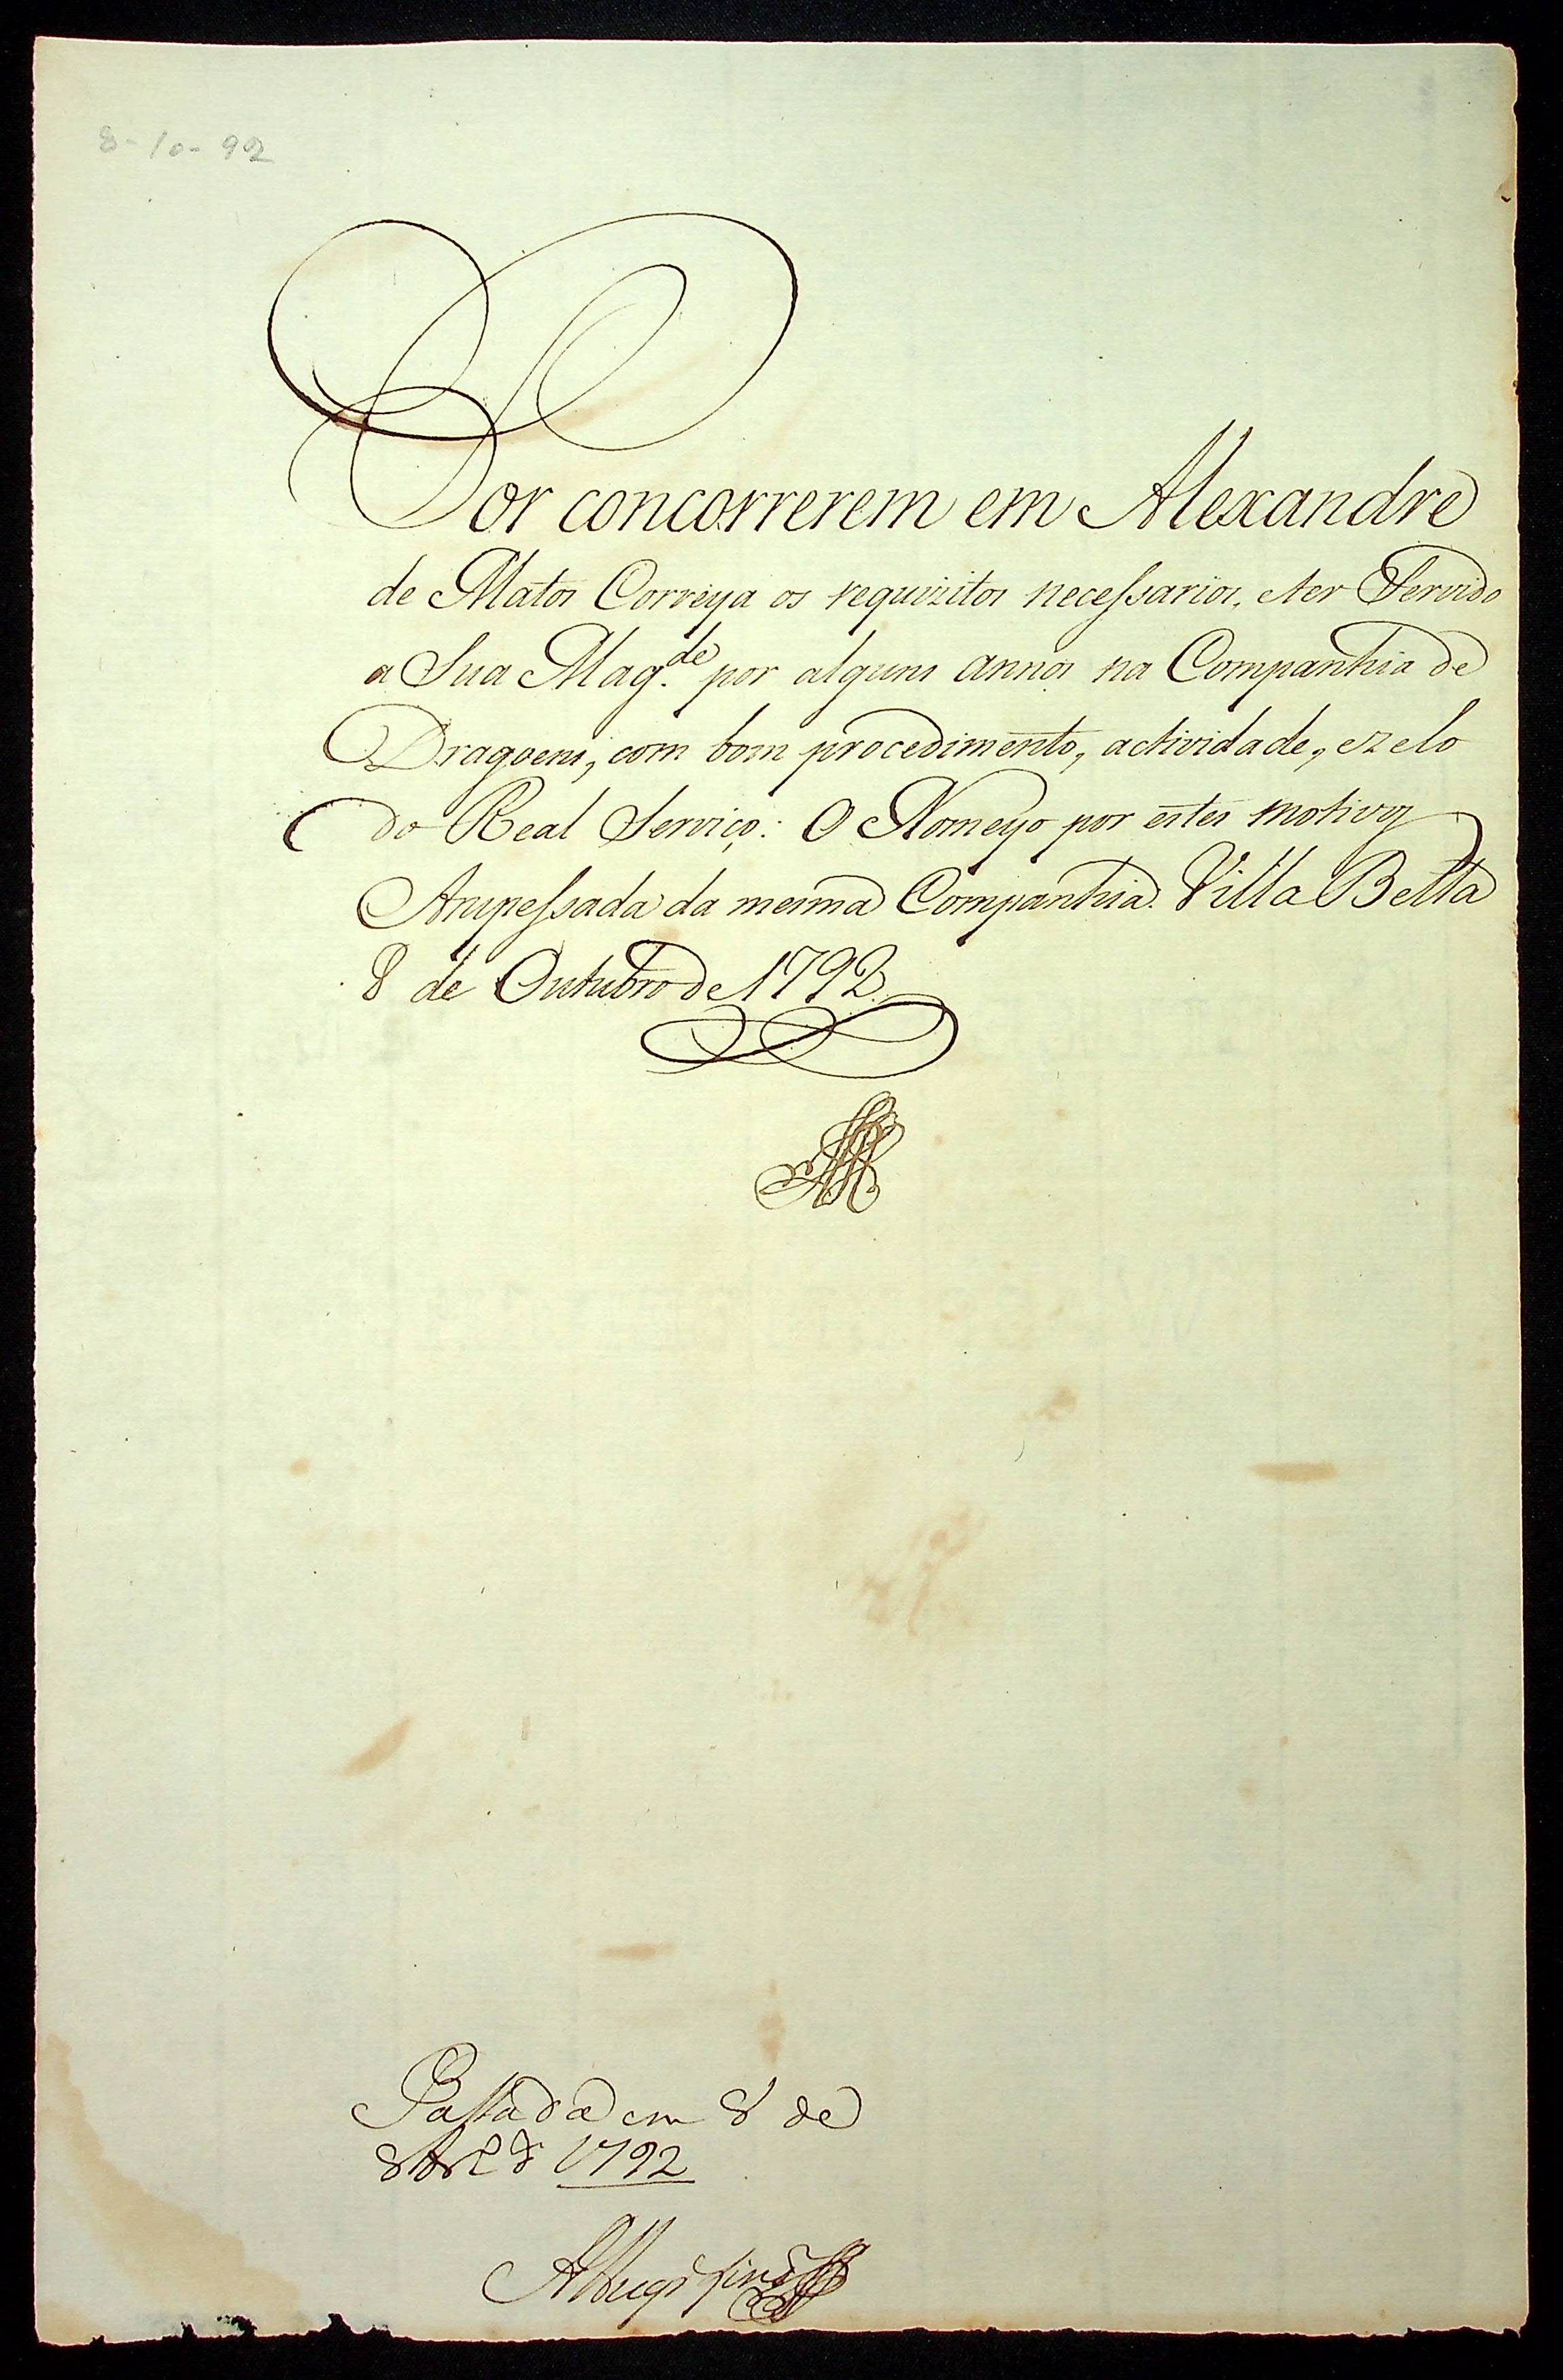 8-10-92
Por concorrerem em Alexandre
de Matos Correya os requizitos necessarios, e ter Servido
a Sua Mag.de por alguns annos na Companhia de
Dragoens, com bom procedimento, actividade, e zelo
do Real Serviço: O Nomeyo por estes motivos
Anspessada da mesma Companhia. Villa Bella
8 de Outubro de 1792.
Passada em 8 de
8br.o de 1792